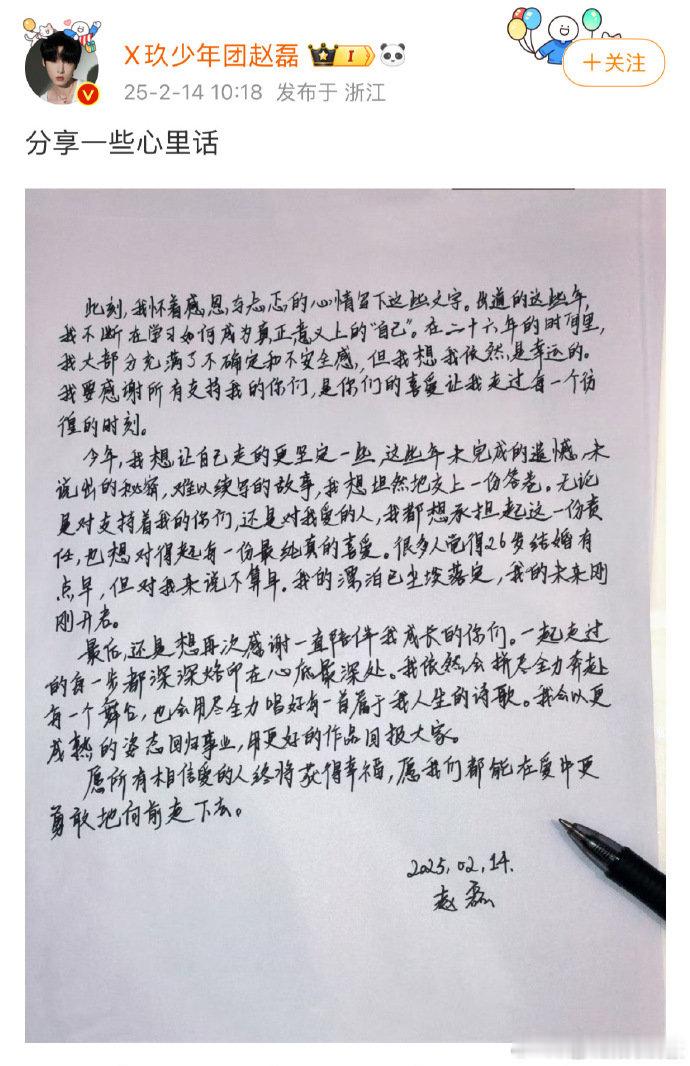 X玖少年团赵磊
I
25-2-14 10:18 发布于 浙江
+关注
分享一些心里话
此刻,我怀着感恩与忐忑的心情留下这些文字。出道的这些年,
我不断在学习如何成为真正意义上的“自己”。在二十六年的时间里,
我大部分充满了不确定和不安全感,但我想我依然是幸运的。
我要感谢所有支持我的你们,是你们的喜爱让我走过每一个彷
徨的时刻。
今年,我想让自己走的更坚定一些,这些年未完成的遗憾,未
说出的秘密,难以续写的故事,我想坦然地交上一份答卷。无论
是对支持着我的你们,还是对我爱的人,我都想承担起这一份责
任,也想对得起每一份最纯真的喜爱。很多人觉得26岁结婚有
点早,但对我来说不算早。我的漂泊已尘埃落定,我的未来刚
刚开启。
最后,还是想再次感谢一直陪伴我成长的你们。一起走过
的每一步都深深烙印在心底最深处。我依然会拼尽全力奔赴
每一个舞台,也会用尽全力唱好每一首属于我人生的诗歌。我会以更
成熟的姿态回归事业,用更好的作品回报大家。
愿所有相信爱的人终将获得幸福,愿我们都能在爱中更
勇敢地向前走下去。
2025.02.14.
赵磊